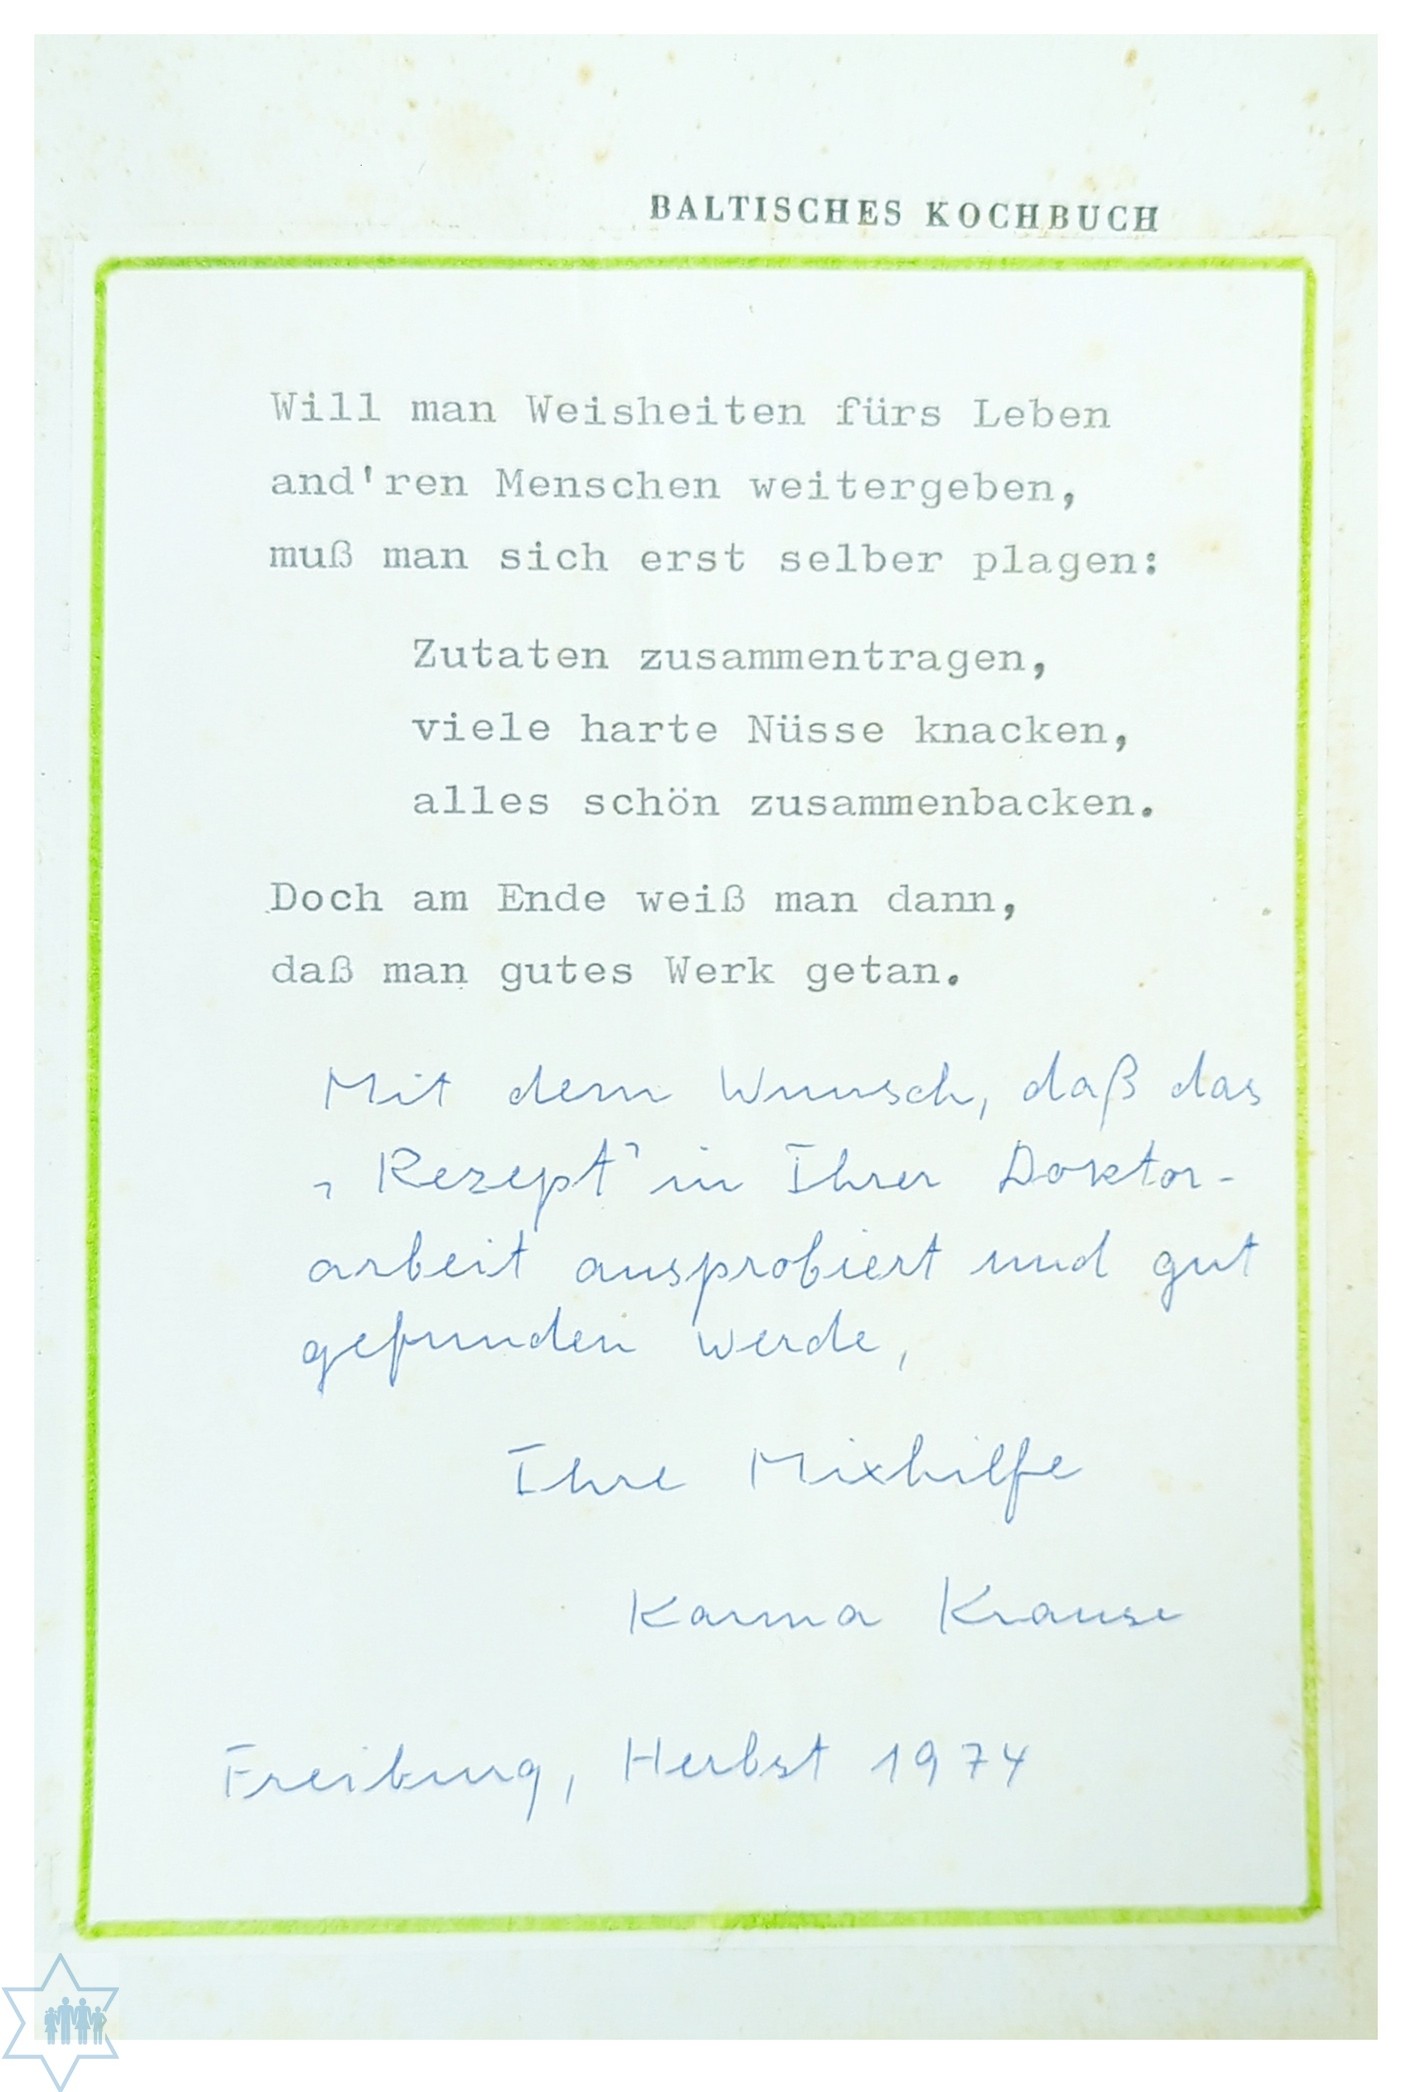 BALTISCHES KOCHBUCH
Will man Weisheiten fürs Leben
and'ren Menschen weitergeben,
muß man sich erst selber plagen:
Zutaten zusammentragen,
viele harte Nüsse knacken,
alles schön zusammenbacken.
Doch am Ende weiß man dann,
daß man gutes Werk getan.
Mit dem Wunsch, daß das
„Rezept“ in Ihrer Doktor-
arbeit ausprobiert und gut
gefunden werde,
Ihre Mixhilfe
Karma Krause
Freiburg, Herbst 1974